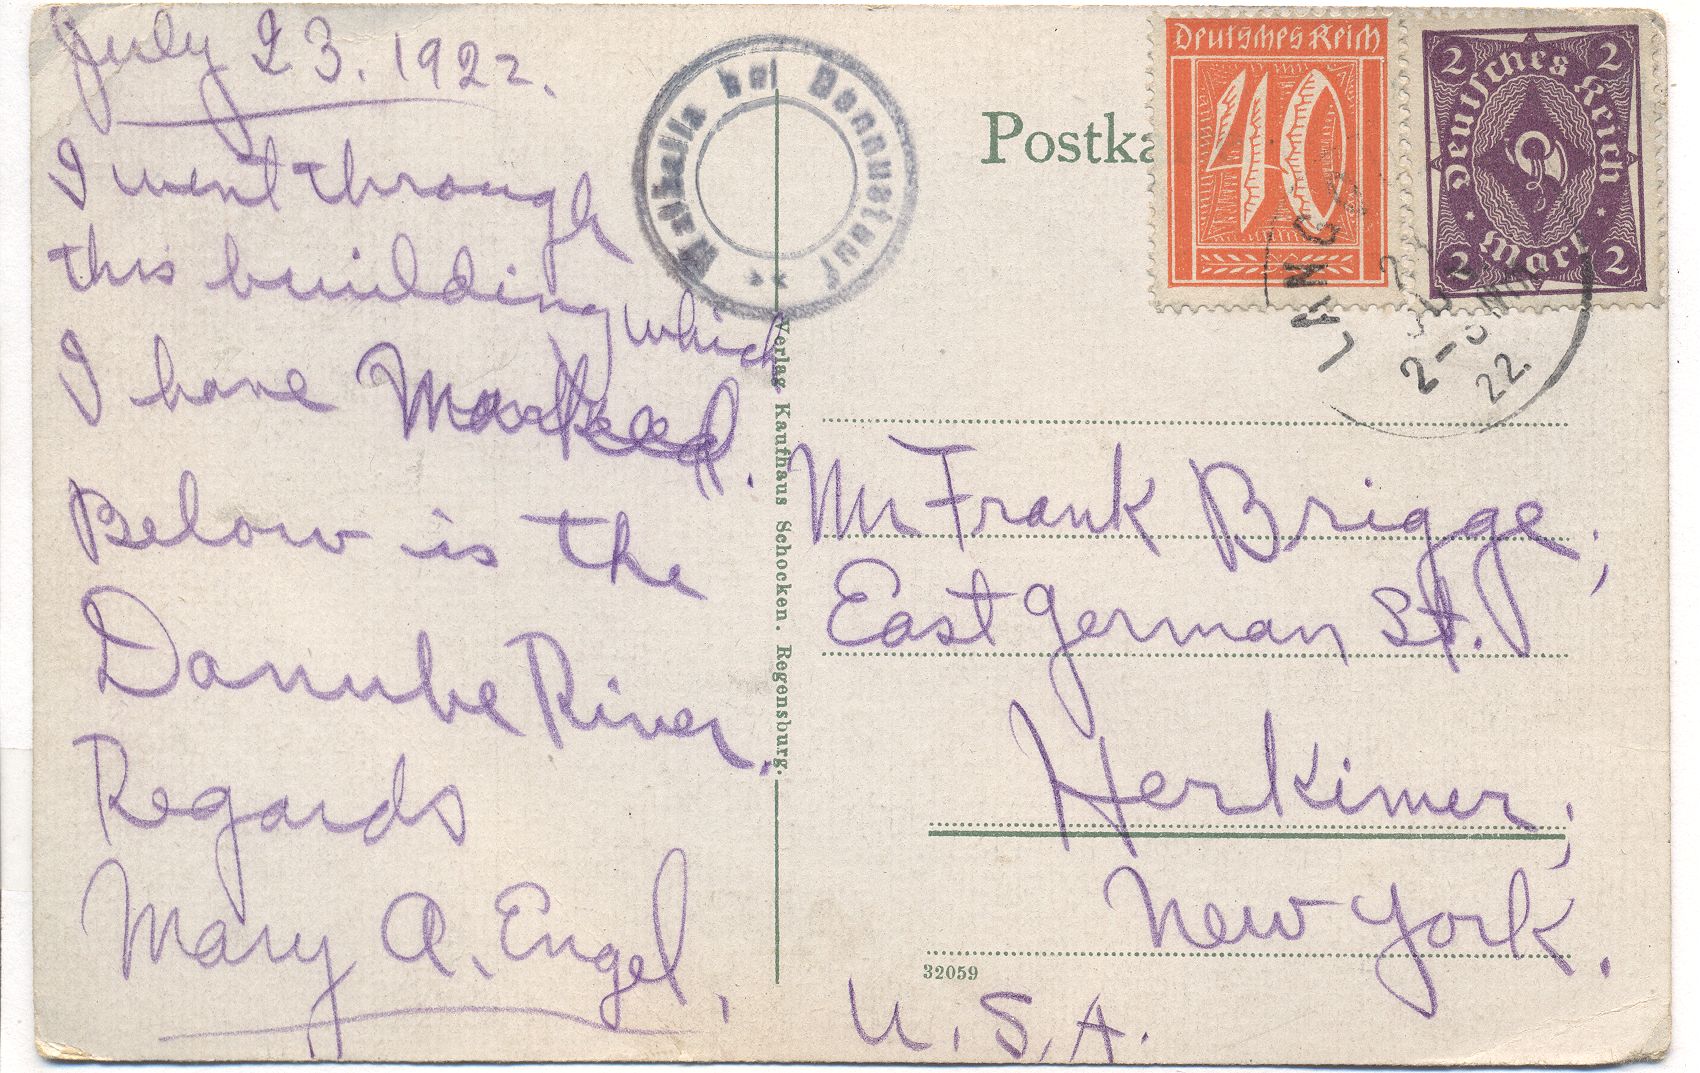 July 23. 1922.
I went through
this building which
I have Marked.
Below is the
Danube River.
Regards
Mary A. Engel,
Walhalla bei Donaustauf
Verlag Kaufhaus Schocken. Regensburg.
Postka
Deutsches Reich
40
2 2
Deutsches Reich
2 Mark 2
22.
Mr Frank Brigge,
East German St.
Herkimer,
New York.
U.S.A.
32059